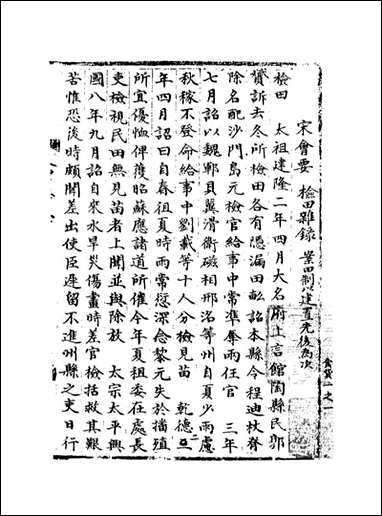 宋會要 檢田雜錄 業田制建置先後爲次
檢田 太祖建隆二年四月大名府上言館陶縣民郭
贄訴去冬所檢田各有隱漏田畝詔本縣令程迪杖脊
除名配沙門島元檢官給事中常準奪兩任官 三年
七月詔以魏鄆貝冀滑衛磁相邢洺等州自夏少雨慮
秋稼不登命給事中劉載等十人分檢見苗 乾德二
年四月詔曰自春徂夏時雨常愆深念黎元失於播殖
所宜優恤俾獲昭蘇應諸道所催今年夏租委在處長
吏檢視民田無見苗者上聞並與除放 太宗太平興
國八年九月詔自來水旱災傷畫時差官檢括救其艱
苦惟恐後時頗聞差出使臣遲留不進州縣之吏日行
食貨一之一